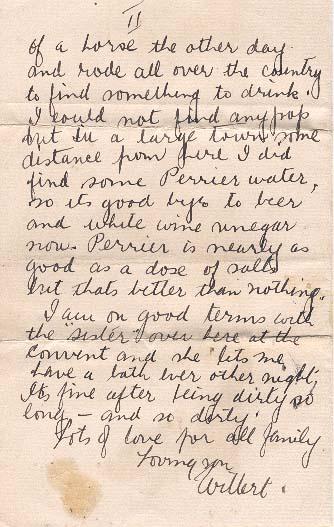 II
of a horse the other day
and rode all over the country
to find something to drink.
I could not find any pop
but in a large town some
distance from here I did
find some Perrier water,
so its good bye to beer
and white wine vinegar
now. Perrier is nearly as
good as a dose of salts
but thats better than nothing.
I am on good terms with
the "sister" over here at the
convent and she lets me
have a bath ever other night,
Its fine after being dirty so
long — and so dirty.
Lots of love for all family
Loving son
Willert.